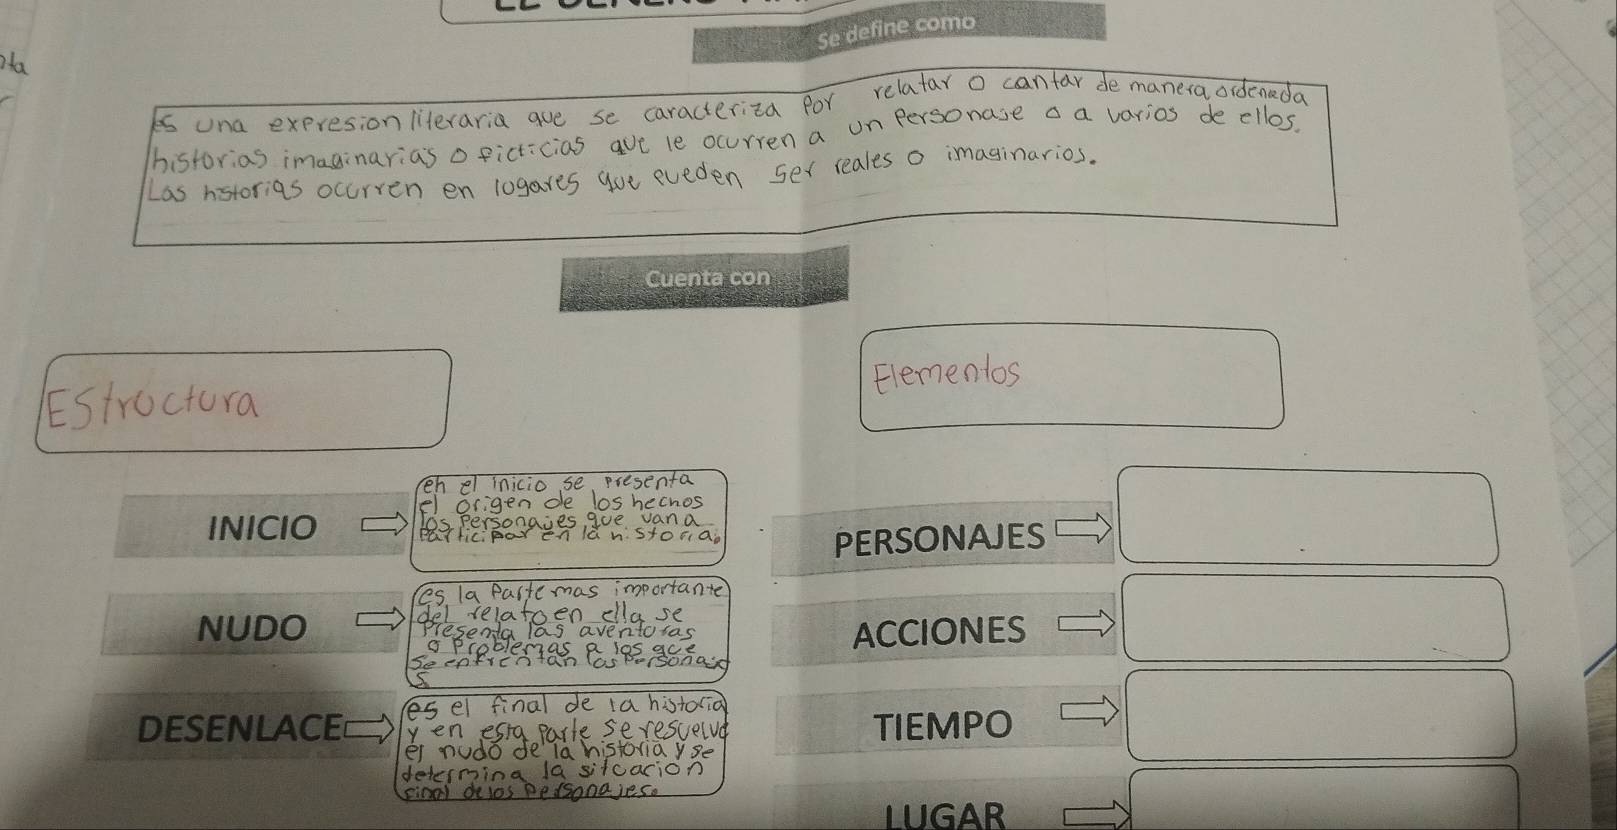 Se define como
es una expresion literaria que se caracteriza por relatar o cantar de manera ordenada
historias imaginarias o ficticias que le ocurren a un Personase o a varios de ellos.
Las historias ocurren en logares que pueden ser reales o imaginarios.
Cuenta con
Estroctura
Elementos
INICIO
en el inicio se presenta
el origen de los hechos
los Personajes, que van a
Participar en la historia.
NUDO
es la Parte mas importante
del relato en ella se
Presenta las aventoras
o Problemas a los que
Se enfrentan las Personaje
s
DESENLACE
es el final de la historia
y en esta parte se resuelve
el nudo de la historia y se
determina la sitoacion
final de los personajes.
PERSONAJES
ACCIONES
TIEMPO
LUGAR